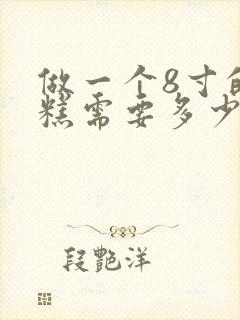 做一个8寸的
糕需要多少
段艷洋